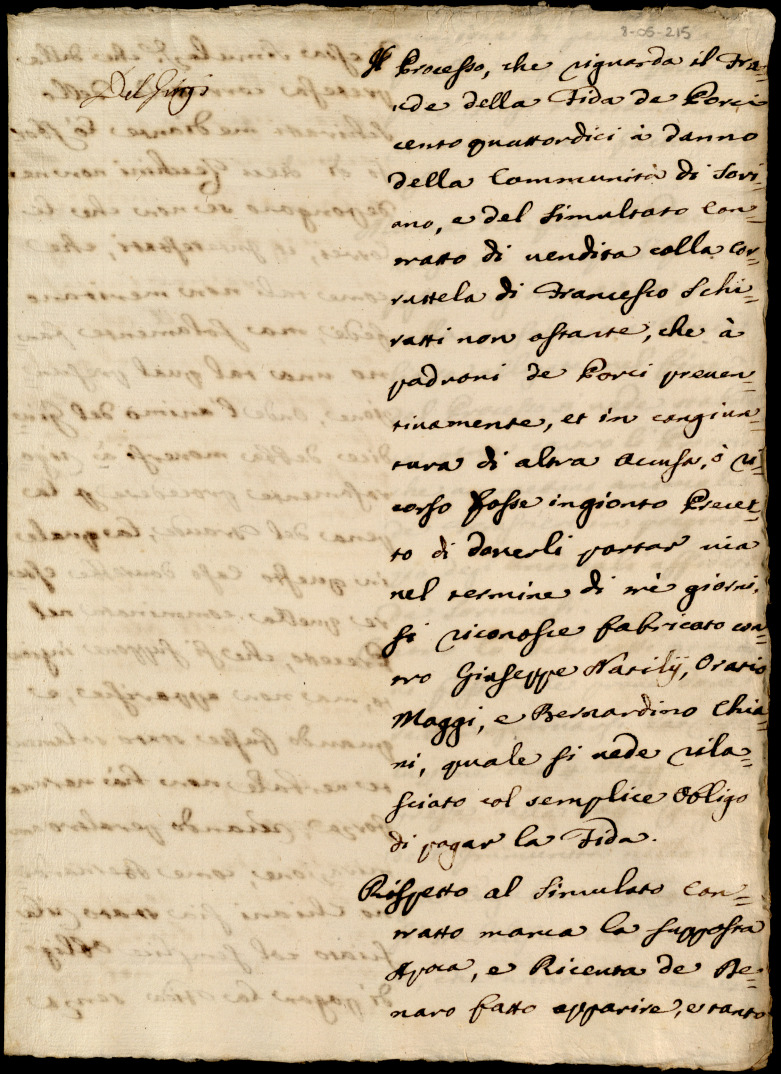 8-05-215
Il Processo, che riguarda il Fra=
ude della Fida de Porci
cento quattordici à danno
della Communità di Sori=
ano, e del simultato Con=
tratto di vendita colla cor=
ruttela di Francesco Schi=
ratti non ostante, che à
padroni de Porci preven=
tivamente, et in congiun=
tura di altra accusa, ò ri=
corso fosse ingionto Precet=
to di doverli portar via
nel termine di trè giorni,
si riconosce fabricato con=
tro Giuseppe Natilij, Oratio
Maggi, e Bernardino Chia=
ni, quale si vede rila=
sciato col semplice obligo
di pagar la Fida.
Rispetto al simulato Con=
tratto manca la supposta
Apoca, e Ricevuta de De=
naro fatto apparire, e tanto